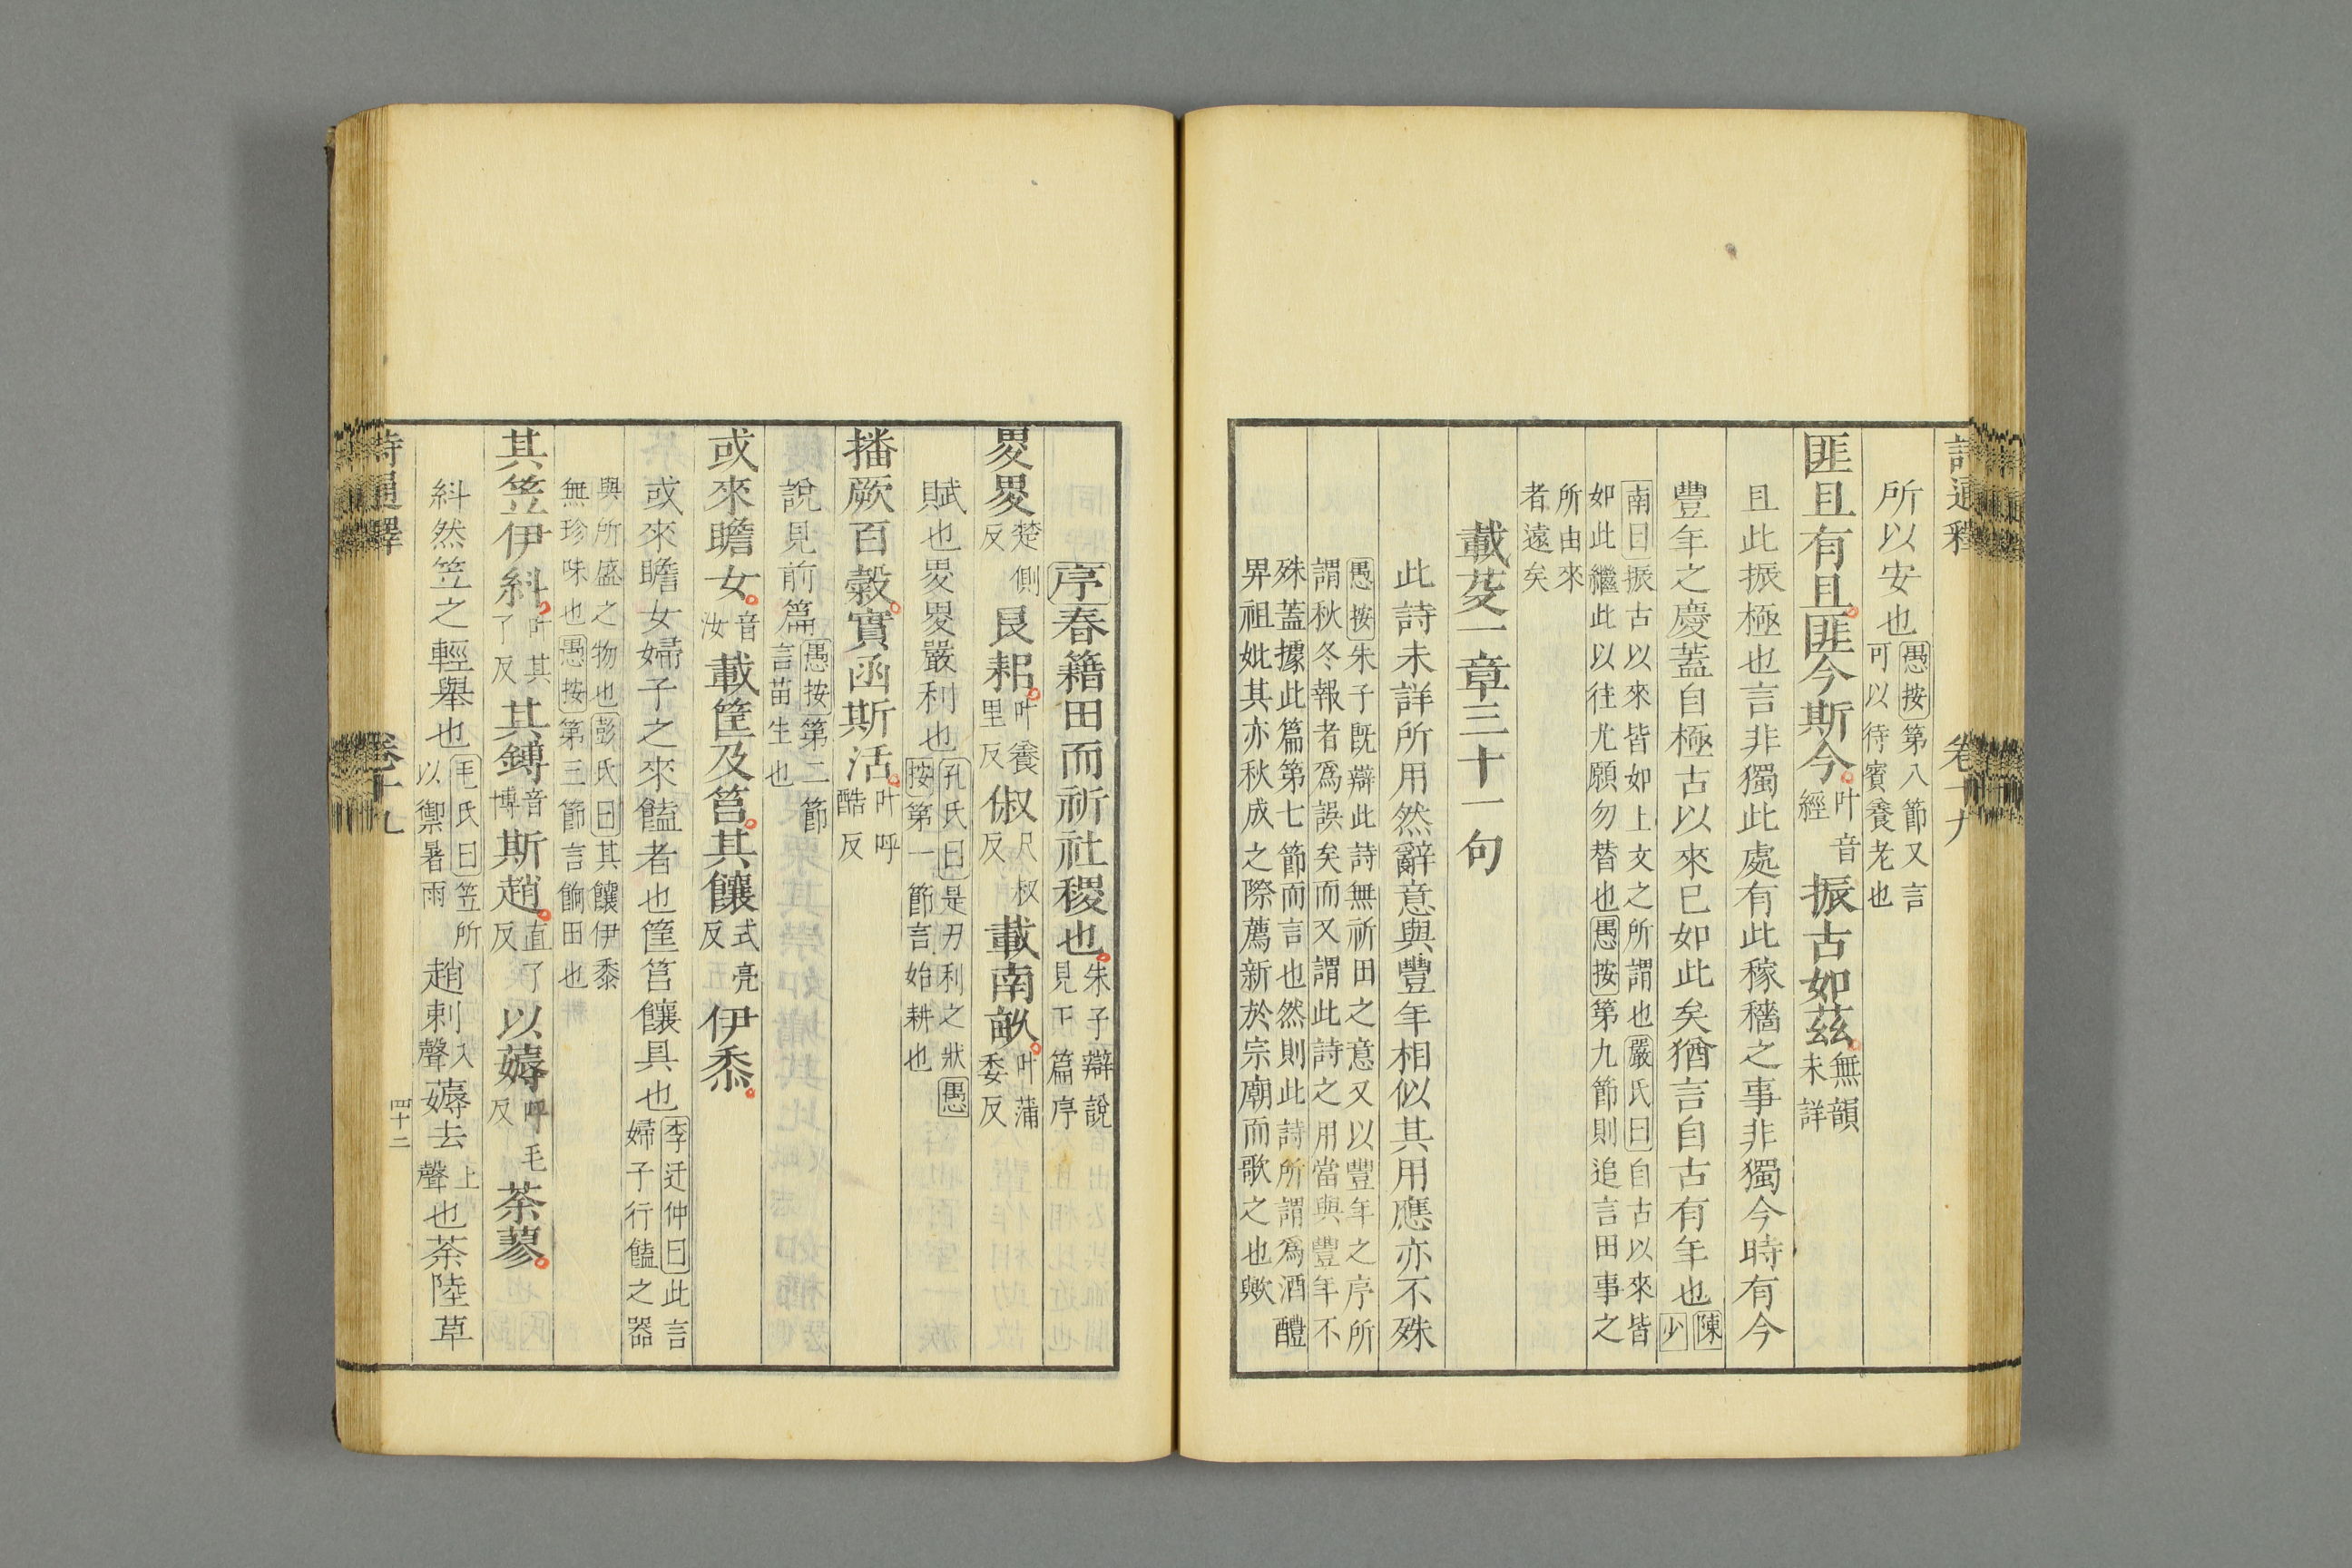 詩通釋 卷十九
所以安也愚按第八節又言可以待賓養老也
匪且有且匪今斯今叶音經振古如茲無韻未詳
且此振極也言非獨此處有此稼穡之事非獨今時有今
豐年之慶蓋自極古以來已如此矣猶言自古有年也陳少
南曰振古以來皆如上文之所謂也嚴氏曰自古以來皆如此繼此以往尤願勿替也愚按第九節則追言田事之
所由來者遠矣
載芟一章三十一句
此詩未詳所用然辭意與豐年相似其用應亦不殊
愚按朱子旣辯此詩無祈田之意又以豐年之序所謂秋冬報者爲誤矣而又謂此詩之用當與豐年不
殊蓋據此篇第七節而言也然則此詩所謂爲酒醴畀祖妣其亦秋成之際薦新於宗廟而歌之也歟
序春籍田而祈社稷也朱子辯說見下篇序
畟畟楚側反良耜叶養里反俶尺叔反載南畝叶蒲委反
賦也畟畟嚴利也孔氏曰是刃利之狀愚按第一節言始耕也
播厥百穀實函斯活叶呼酷反
說見前篇愚按第二節言苗生也
或來瞻女音汝載筐及筥其饟式亮反伊黍
或來瞻女婦子之來饁者也筐筥饟具也李迂仲曰此言婦子行饁之器
與所盛之物也彭氏曰其饟伊黍無珍味也愚按第三節言餉田也
其笠伊糾叶其了反其鎛音博斯趙直了反以薅呼毛反荼蓼
糾然笠之輕舉也毛氏曰笠所以禦暑雨趙刺入聲薅去上聲也荼陸草
詩通釋 卷十九 四十二